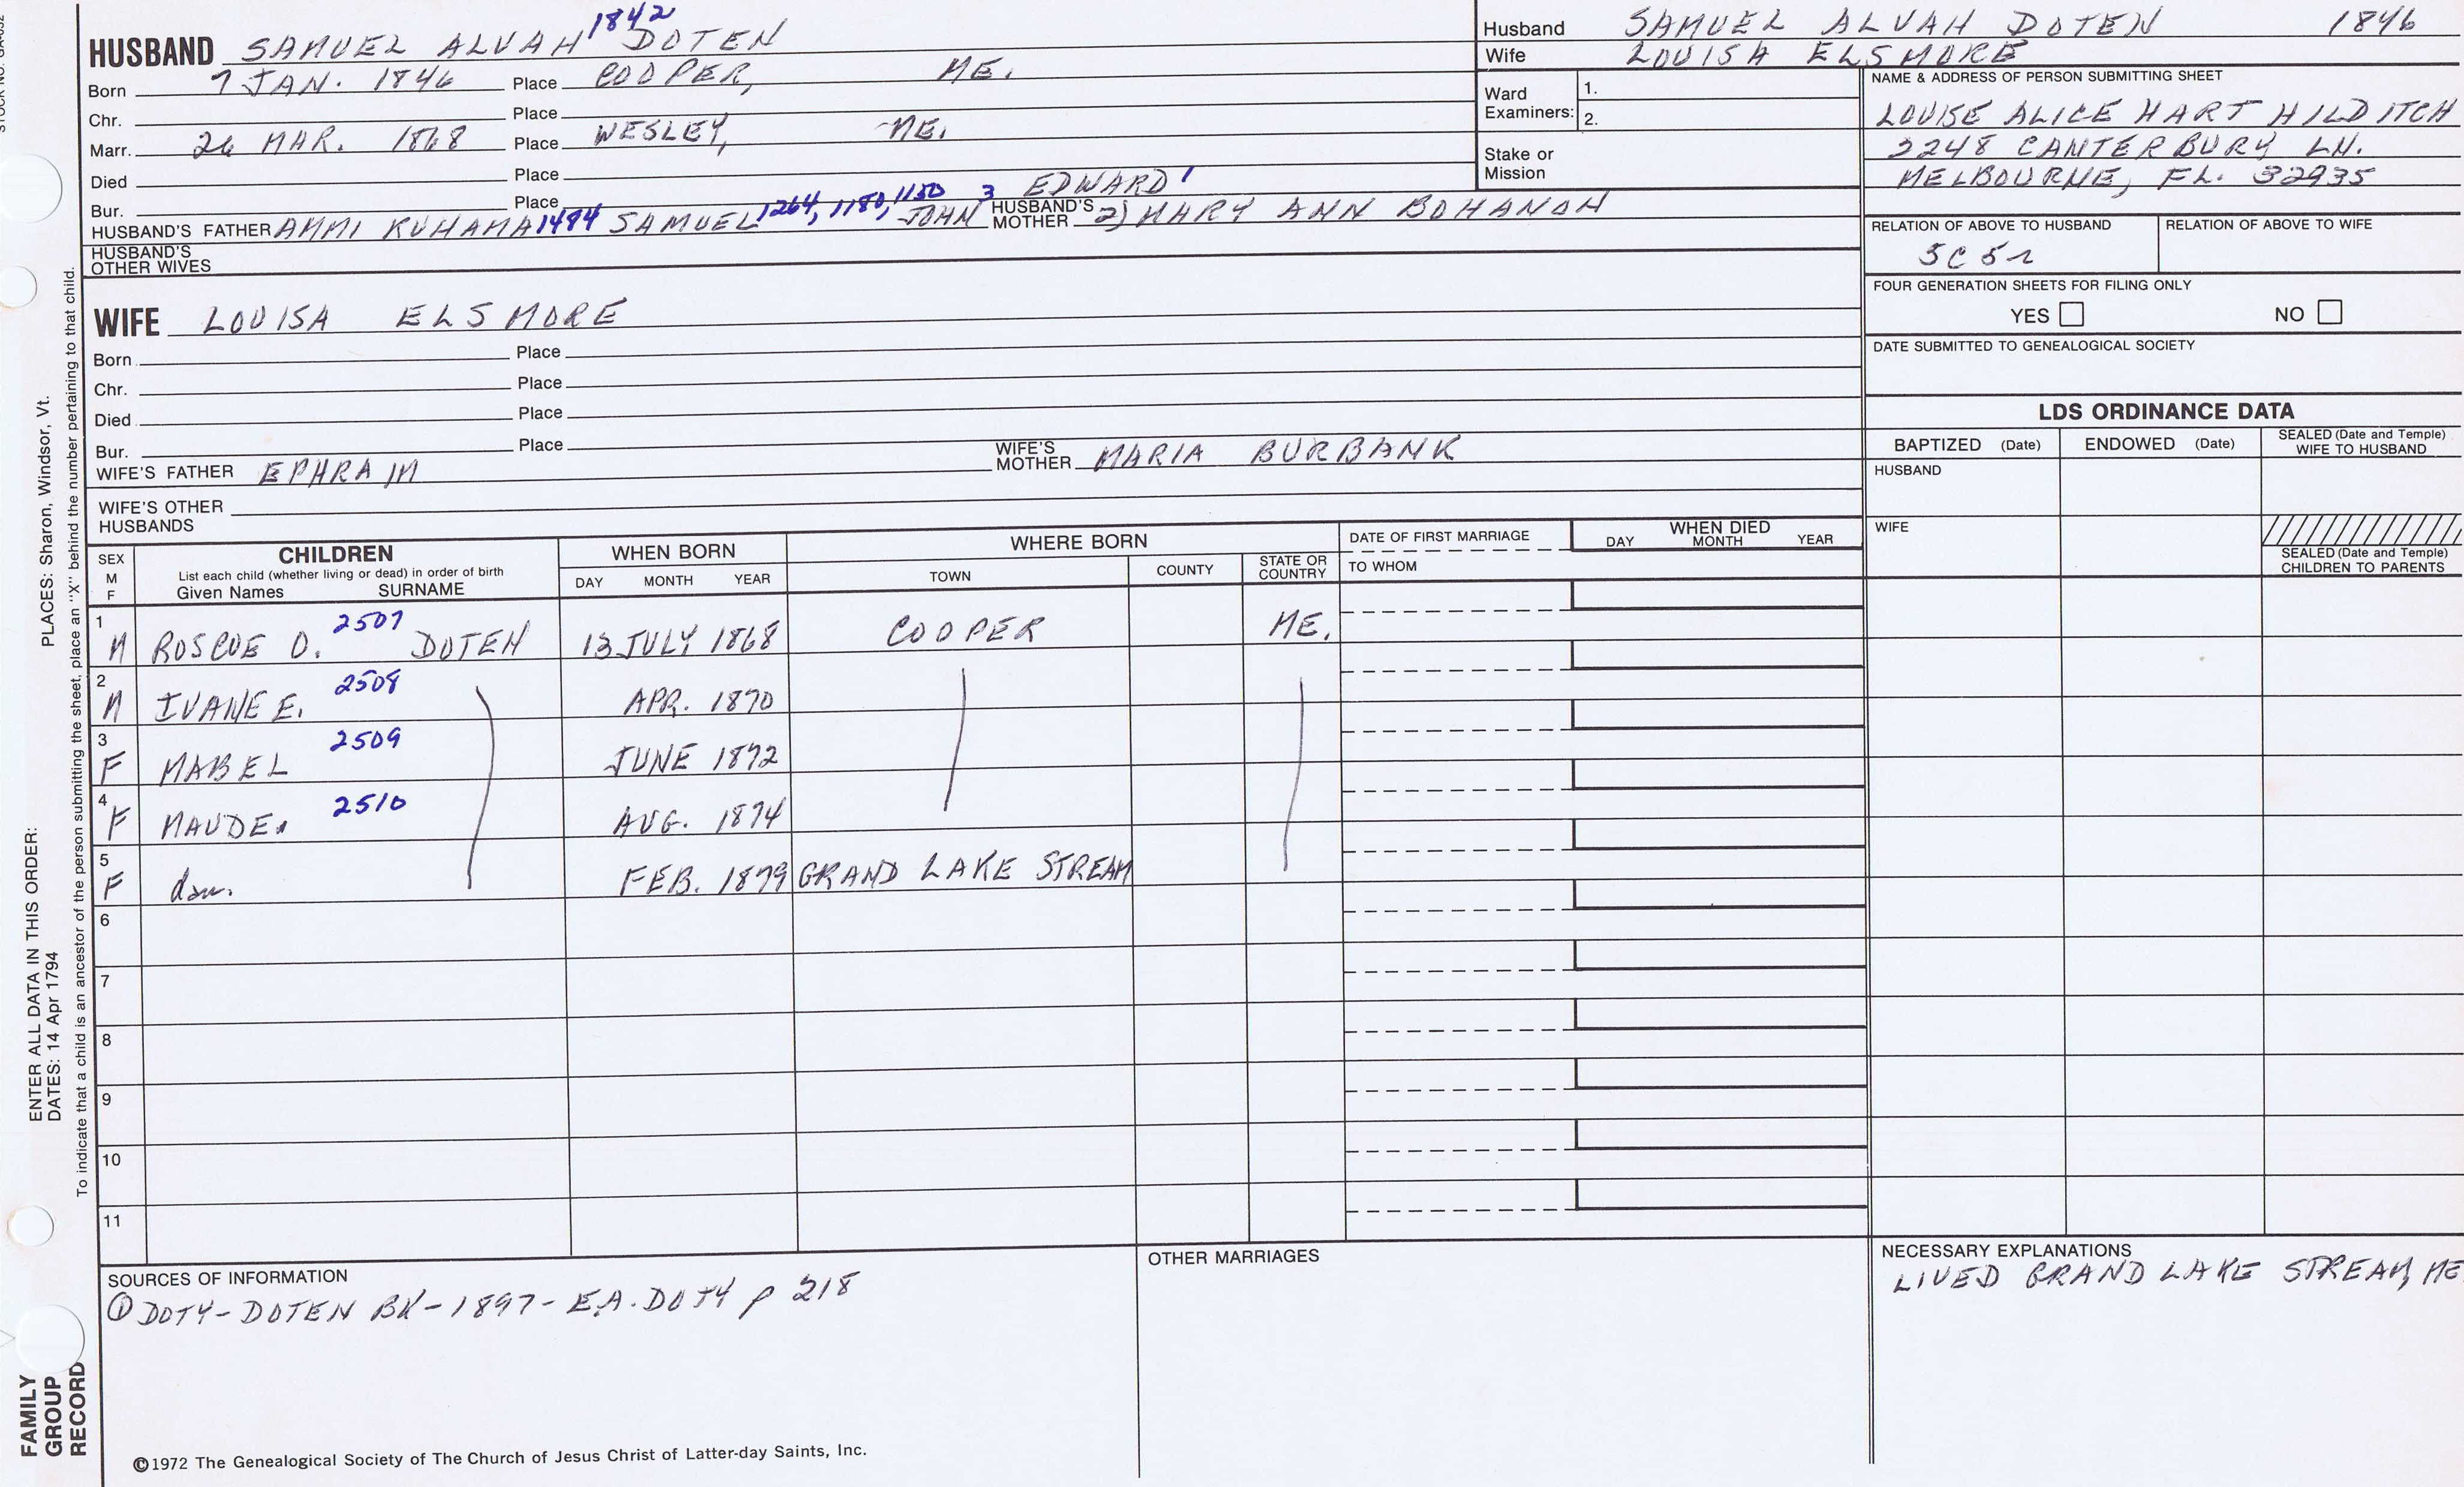 HUSBAND SAMUEL ALVAH 1842 DOTEN
Born 7 JAN. 1846 Place COOPER, ME.
Chr. Place
Marr. 26 MAR. 1868 Place WESLEY, ME.
Died Place
Bur. Place
HUSBAND'S FATHER AMMI RUHAMA 1484 SAMUEL 1264, 1180, 1150 JOHN 3 EDWARD 1 HUSBAND'S MOTHER 2) MARY ANN BOHANON
HUSBAND'S OTHER WIVES
Husband SAMUEL ALVAH DOTEN 1846
Wife LOUISA ELSMORE
Ward Examiners: 1.
2.
Stake or Mission
NAME & ADDRESS OF PERSON SUBMITTING SHEET
LOUISE ALICE HART HILDITCH
2248 CANTERBURY LN.
MELBOURNE, FL. 32935
RELATION OF ABOVE TO HUSBAND RELATION OF ABOVE TO WIFE
5C5r
FOUR GENERATION SHEETS FOR FILING ONLY
YES NO
DATE SUBMITTED TO GENEALOGICAL SOCIETY
WIFE LOUISA ELSMORE
Born Place
Chr. Place
Died Place
Bur. Place
WIFE'S FATHER EPHRAIM WIFE'S MOTHER MARIA BURBANK
WIFE'S OTHER HUSBANDS
LDS ORDINANCE DATA
BAPTIZED (Date) ENDOWED (Date) SEALED (Date and Temple) WIFE TO HUSBAND
HUSBAND
WIFE
SEALED (Date and Temple) CHILDREN TO PARENTS
SEX M F CHILDREN WHEN BORN WHERE BORN DATE OF FIRST MARRIAGE WHEN DIED
List each child (whether living or dead) in order of birth
Given Names SURNAME DAY MONTH YEAR TOWN COUNTY STATE OR COUNTRY TO WHOM DAY MONTH YEAR
1 M ROSCOE O. 2507 DOTEN 13 JULY 1868 COOPER ME.
2 M IVANE E. 2508 APR. 1870
3 F MABEL 2509 JUNE 1872
4 F MAUDE. 2510 AUG. 1874
5 F dau. FEB. 1879 GRAND LAKE STREAM
6
7
8
9
10
11
SOURCES OF INFORMATION
① DOTY-DOTEN BK-1897-E.A. DOTY p 218
OTHER MARRIAGES
NECESSARY EXPLANATIONS
LIVED GRAND LAKE STREAM, ME
©1972 The Genealogical Society of The Church of Jesus Christ of Latter-day Saints, Inc.
FAMILY GROUP RECORD
ENTER ALL DATA IN THIS ORDER:
DATES: 14 Apr 1794
PLACES: Sharon, Windsor, Vt.
To indicate that a child is an ancestor of the person submitting the sheet, place an "X" behind the number pertaining to that child.